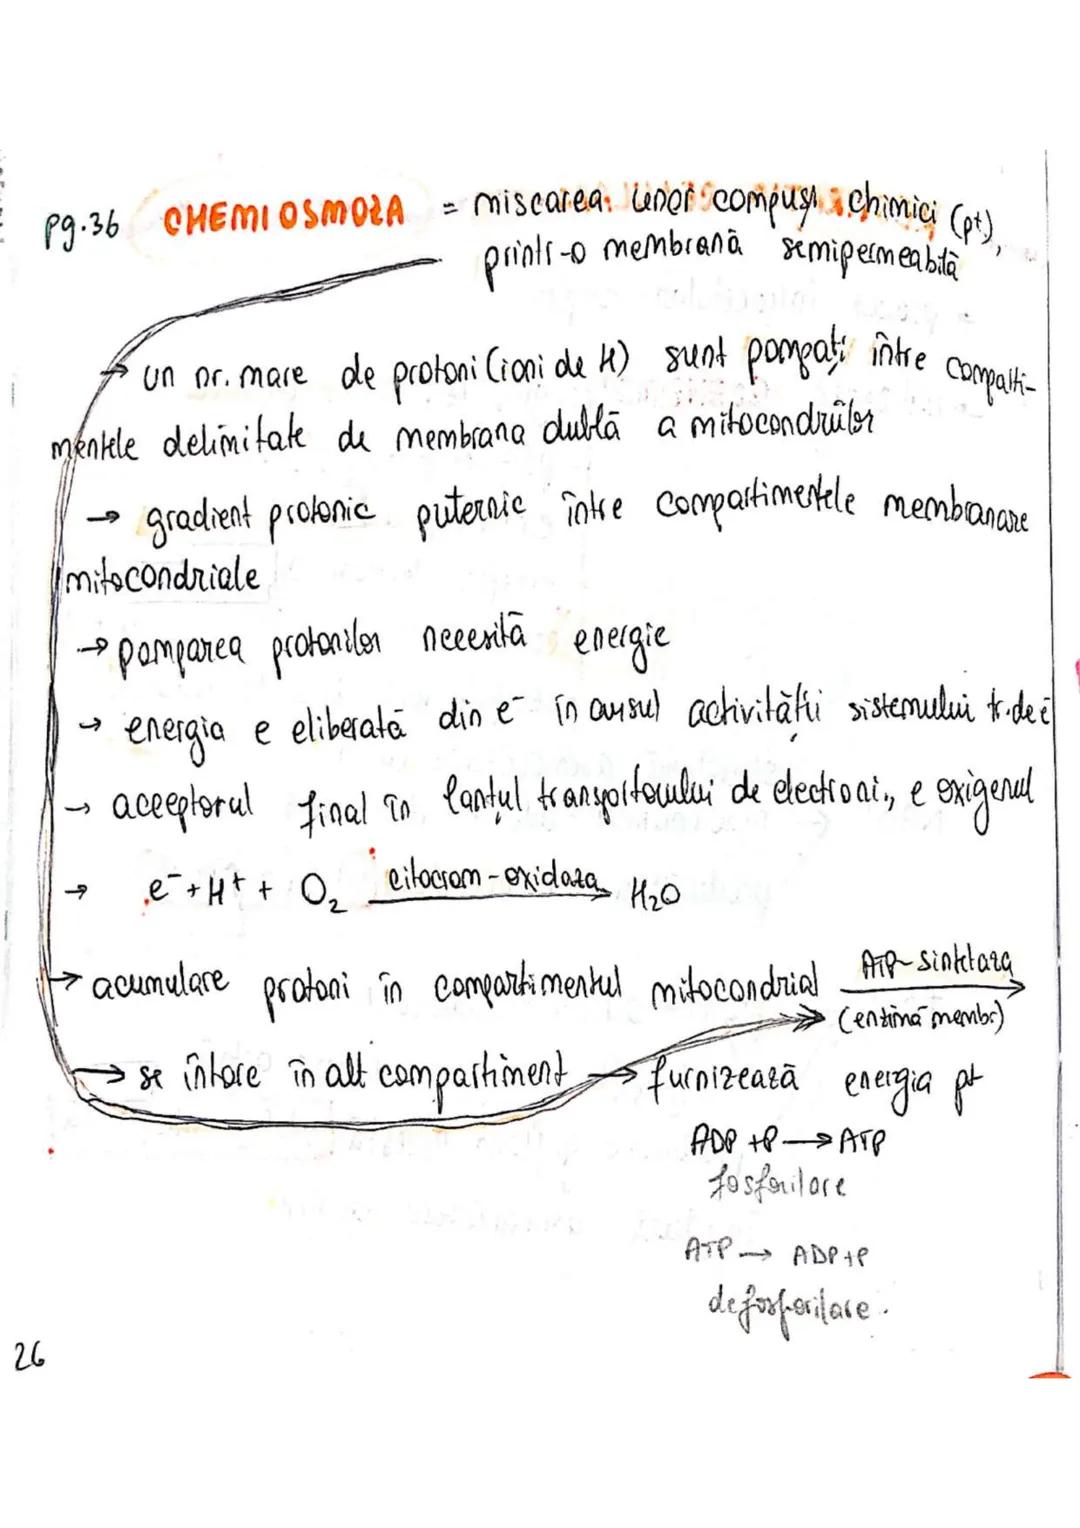 pg.36 CHEMIOSMOZA = miscarea unor compuși chimici (p+),
printr-o membrană semipermeabilă
→ un nr. mare de protoni (ioni de H) sunt pompați între comparti-
mentele delimitate de membrana dublă a mitocondriilor
→ gradient protonic puternic între compartimentele membranare
mitocondriale
→ pomparea protonilor necesită energie
→ energia e eliberată din e⁻ în cursul activității sistemului tr. de e⁻
→ acceptorul final în lanțul transportorului de electroni, e oxigenul
→ e⁻ + H⁺ + O₂ citocrom-oxidaza → H₂O
→ acumulare protoni în compartimentul mitocondrial ATP-sintetaza →
(enzimă membr)
→ se întorc în alt compartiment → furnizează energia pt
ADP + P → ATP
fosforilare
ATP → ADP + P
defosforilare.
26